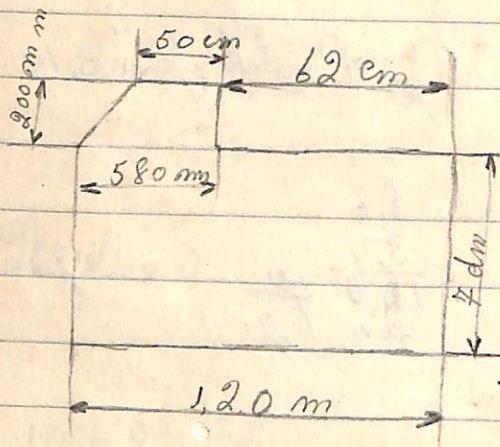 50 cm
62 cm
580 mm
7 dm
1,20 m